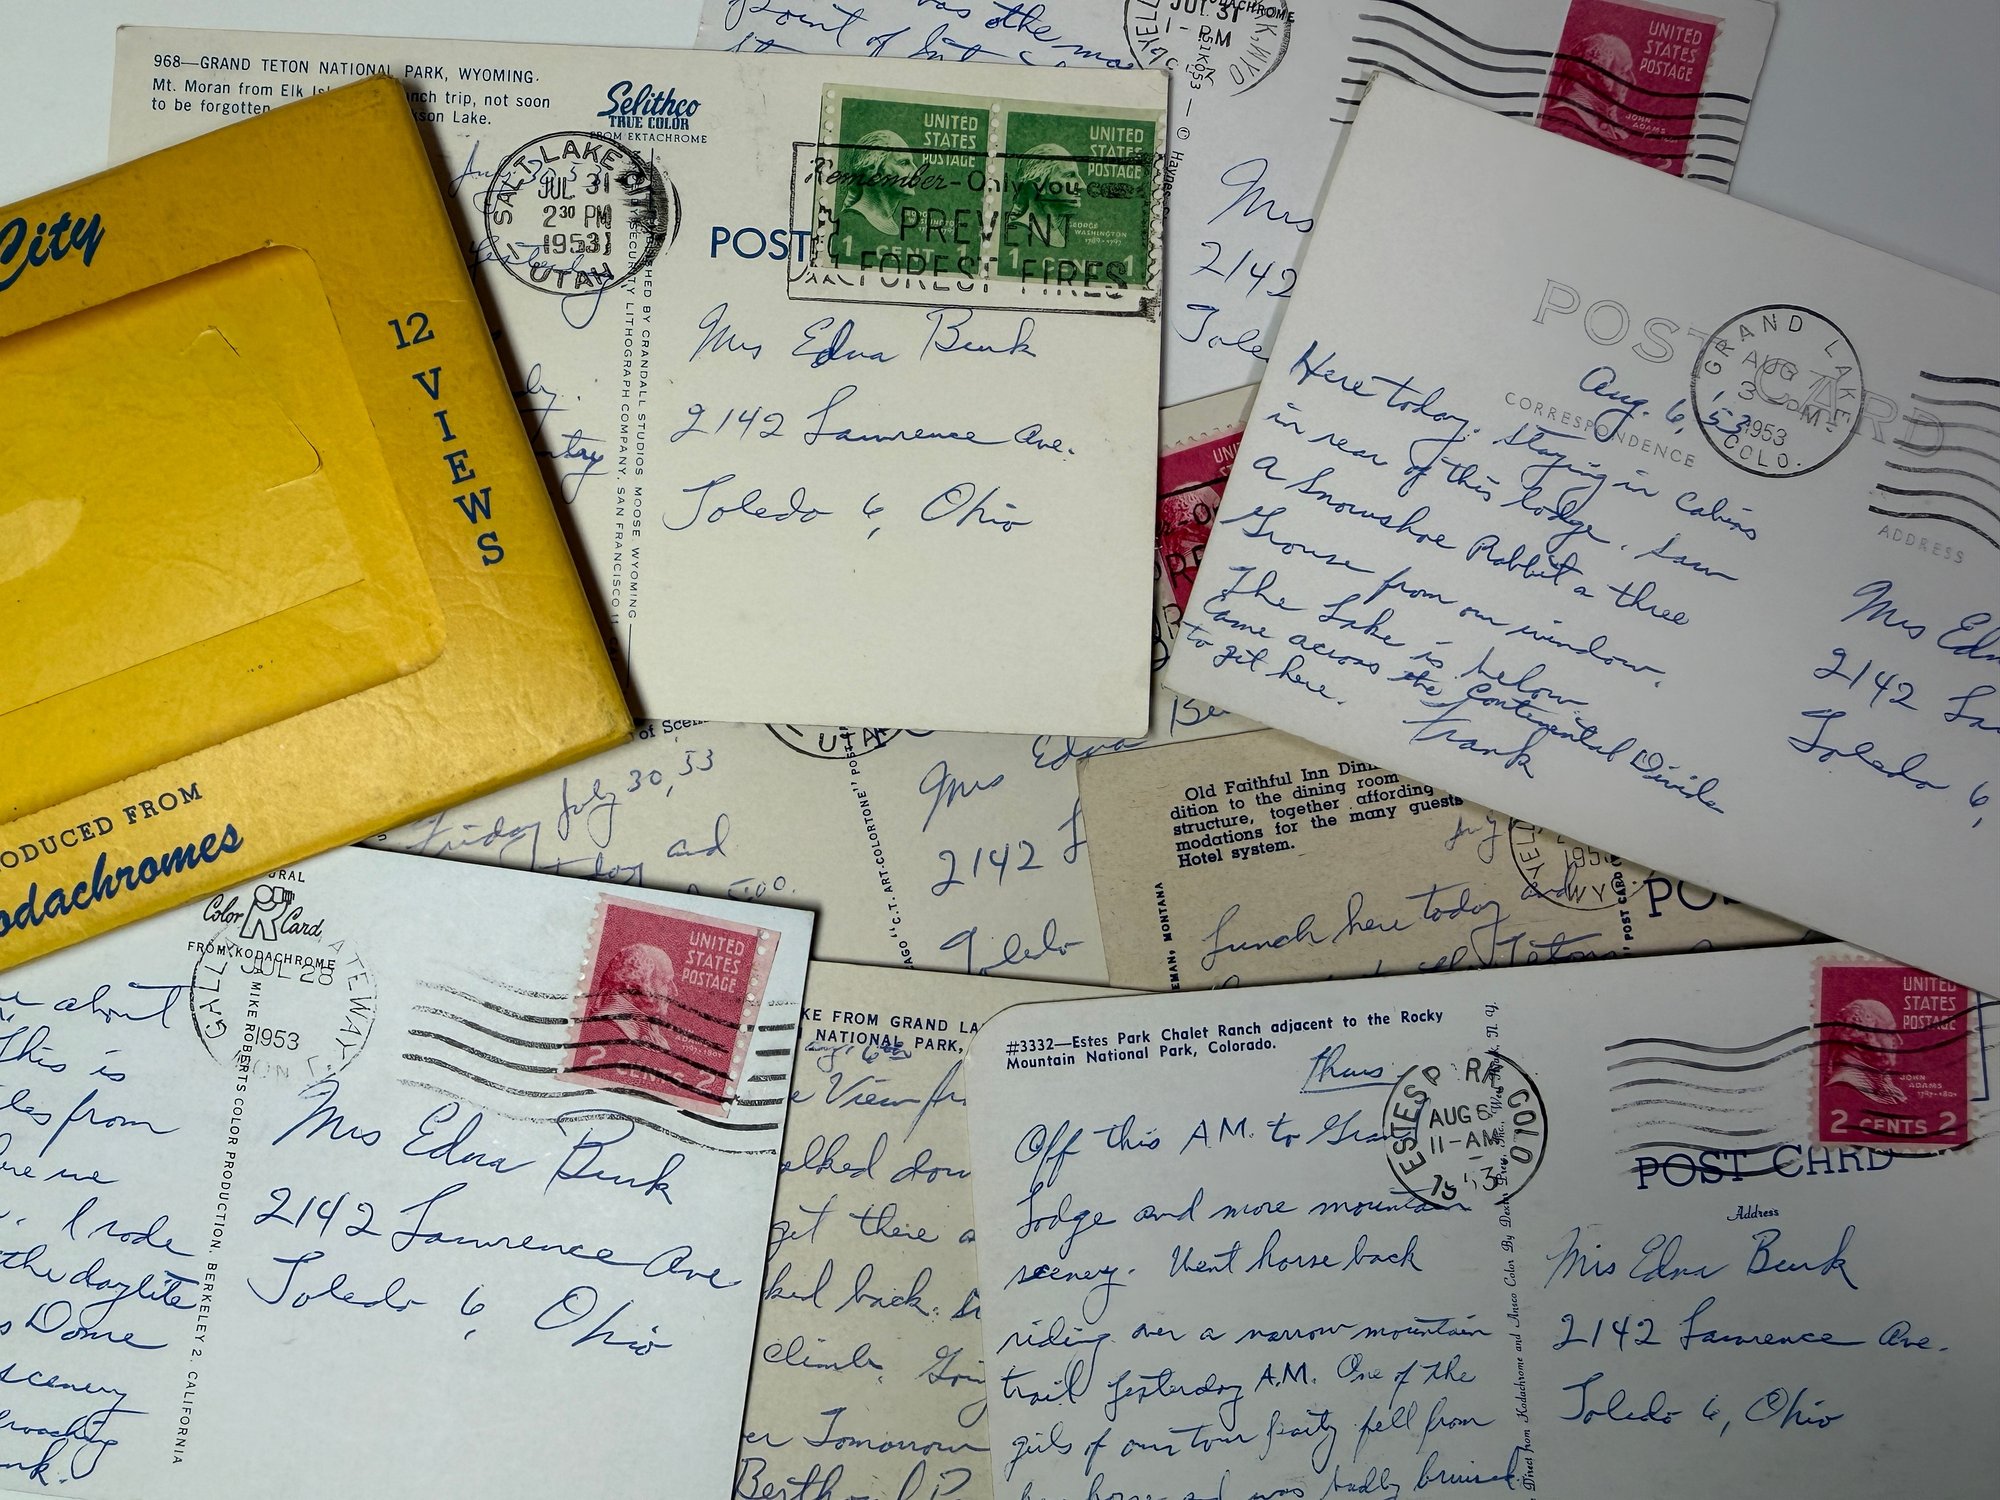 968—GRAND TETON NATIONAL PARK, WYOMING.
Mt. Moran from Elk nch trip, not soon
to be forgotten kson Lake.
Selithco
TRUE COLOR
FROM EKTACHROME
SALT LAKE CITY
JUL 31
2 30 PM
1953
UTAH
PUBLISHED BY CRANDALL STUDIOS MOOSE, WYOMING
BY SECURITY LITHOGRAPH COMPANY, SAN FRANCISCO 11
POST
UNITED
STATES
POSTAGE
GEORGE
WASHINGTON
1 CENT 1
UNITED
STATES
POSTAGE
GEORGE
WASHINGTON
1789-1797
1 CENT 1
Remember-Only you can
PREVENT
FOREST FIRES
Mrs Edna Bunk
2142 Lawrence Ave.
Toledo 6, Ohio
City
12
VIEWS
ODUCED FROM
odachromes
was othe
point of
JUL 31
1-PM
KODACHROME
© Haynes
UNITED
STATES
POSTAGE
JOHN
ADAMS
Mrs
2142
Tole
POST CARD
GRAND LAKE
AUG 7
3 PM
1953
COLO.
CORRESPONDENCE
ADDRESS
Aug. 6, 53
Here today. Staying in cabins
in rear of this lodge. Saw
a Snowshoe Rabbit & three
Grouse from our window.
The Lake is below
Came across the Contenental Divide
to git here.
Frank
Mrs Edn
2142 La
Toledo 6,
of Scen
UTAH
July 30, 53
Friday
today and
5:00.
AGO "C.T. ART-COLORTONE" POST
Edna
Mrs
2142 L
Toledo
Old Faithful Inn Din
dition to the dining room
structure, together affording
modations for the many guests
Hotel system.
EMAN, MONTANA
POST CARD
PO
WY
Lunch here today and
Tetons
Color Card
FROM KODACHROME
GALL ATEWAY
JUL 28
1953
MONT.
MIKE ROBERTS COLOR PRODUCTION, BERKELEY 2, CALIFORNIA
UNITED
STATES
POSTAGE
2 CENTS 2
about
This is
les from
I rode
the daylite
Dome
scenery
Mrs Edna Bunk
2142 Lawrence Ave
Toledo 6, Ohio
KE FROM GRAND LA
NATIONAL PARK,
Aug. 6
e View fr
alked down
get there
ked back.
climb. Going
er Tomorrow
Berthoud P
#3332—Estes Park Chalet Ranch adjacent to the Rocky
Mountain National Park, Colorado.
Thurs
ESTES PARK
AUG 6
11-AM
1953
COLO
Off this A.M. to Gran
Lodge and more mountain
scenery. Went horse back
riding over a narrow mountain
trail yesterday A.M. One of the
girls of our tour party fell from
her horse and was badly bruised.
Direct from Kodachrome and Ansco Color By Dexter Press, Inc., West Nyack, N. Y.
UNITED
STATES
POSTAGE
JOHN
ADAMS
2 CENTS 2
POST CARD
Address
Mrs Edna Bunk
2142 Lawrence Ave.
Toledo 6, Ohio